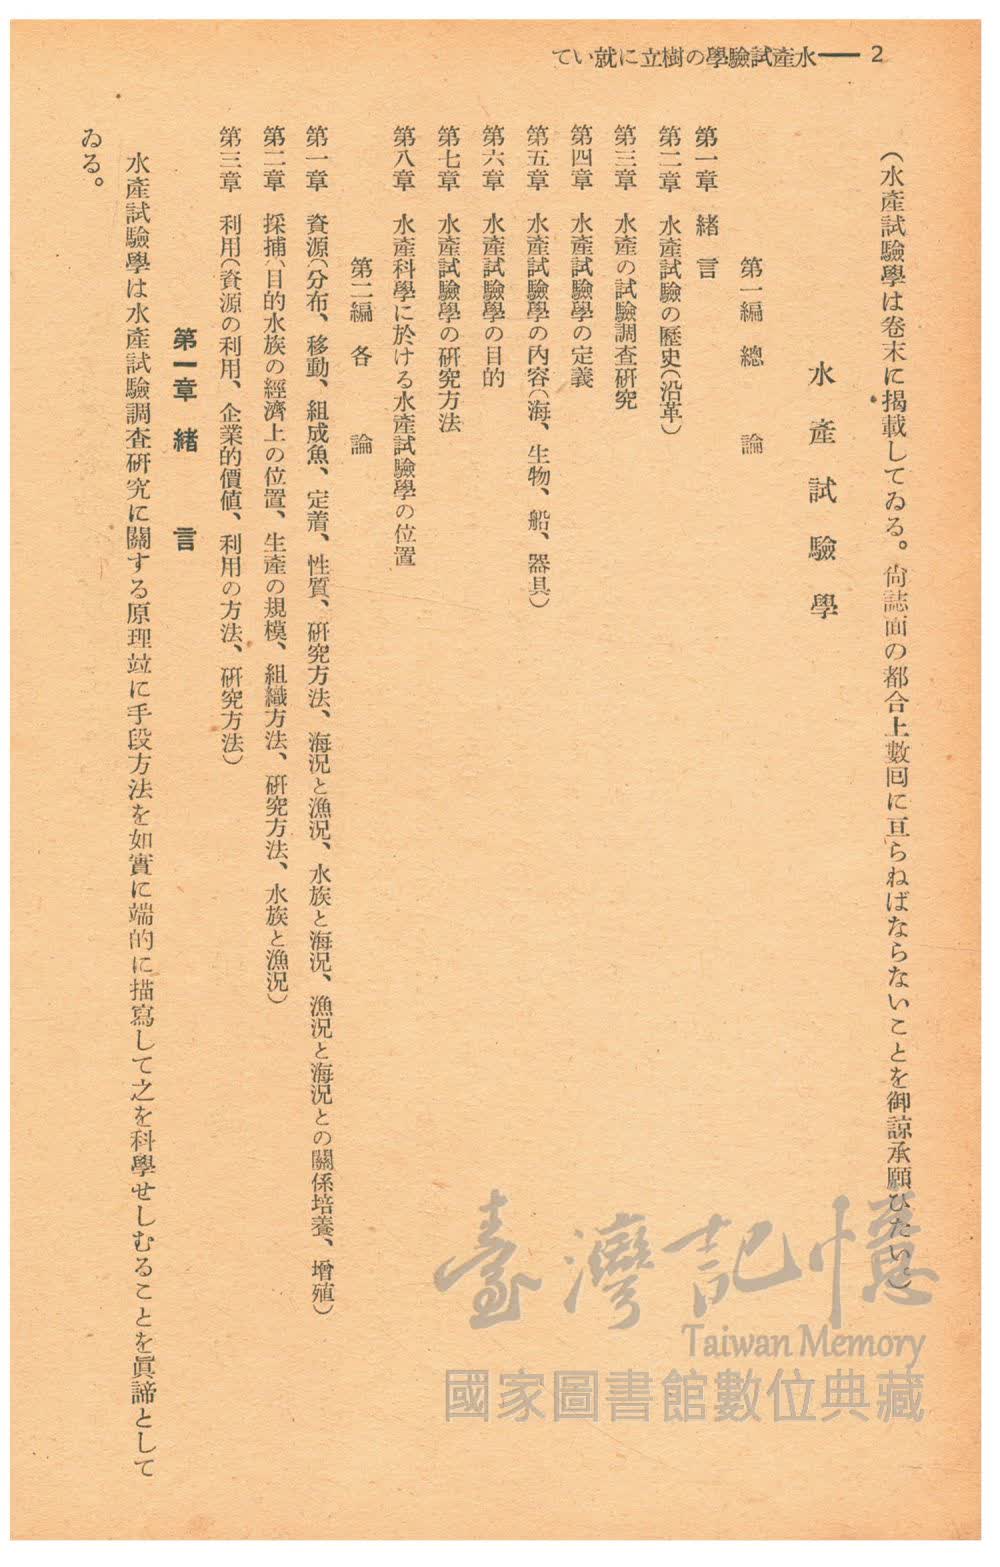 2 ── 水產試驗學の樹立に就いて
（水產試驗學は卷末に揭載してゐる。尙誌面の都合上數回に亘らねばならないことを御諒承願ひたい。）
水產試驗學
第一編 總論
第一章 緖言
第二章 水產試驗の歷史（沿革）
第三章 水產の試驗調查硏究
第四章 水產試驗學の定義
第五章 水產試驗學の內容（海、生物、船、器具）
第六章 水產試驗學の目的
第七章 水產試驗學の硏究方法
第八章 水產科學に於ける水產試驗學の位置
第二編 各論
第一章 資源（分布、移動、組成魚、定着、性質、硏究方法、海況と漁況、水族と海況、漁況と海況との關係培養、增殖）
第二章 採捕（目的水族の經濟上の位置、生產の規模、組織方法、硏究方法、水族と漁況）
第三章 利用（資源の利用、企業的價値、利用の方法、硏究方法）
第一章 緖言
水產試驗學は水產試驗調查硏究に關する原理竝に手段方法を如實に端的に描寫して之を科學せしむることを眞諦として
ゐる。
臺灣記憶
Taiwan Memory
國家圖書館數位典藏